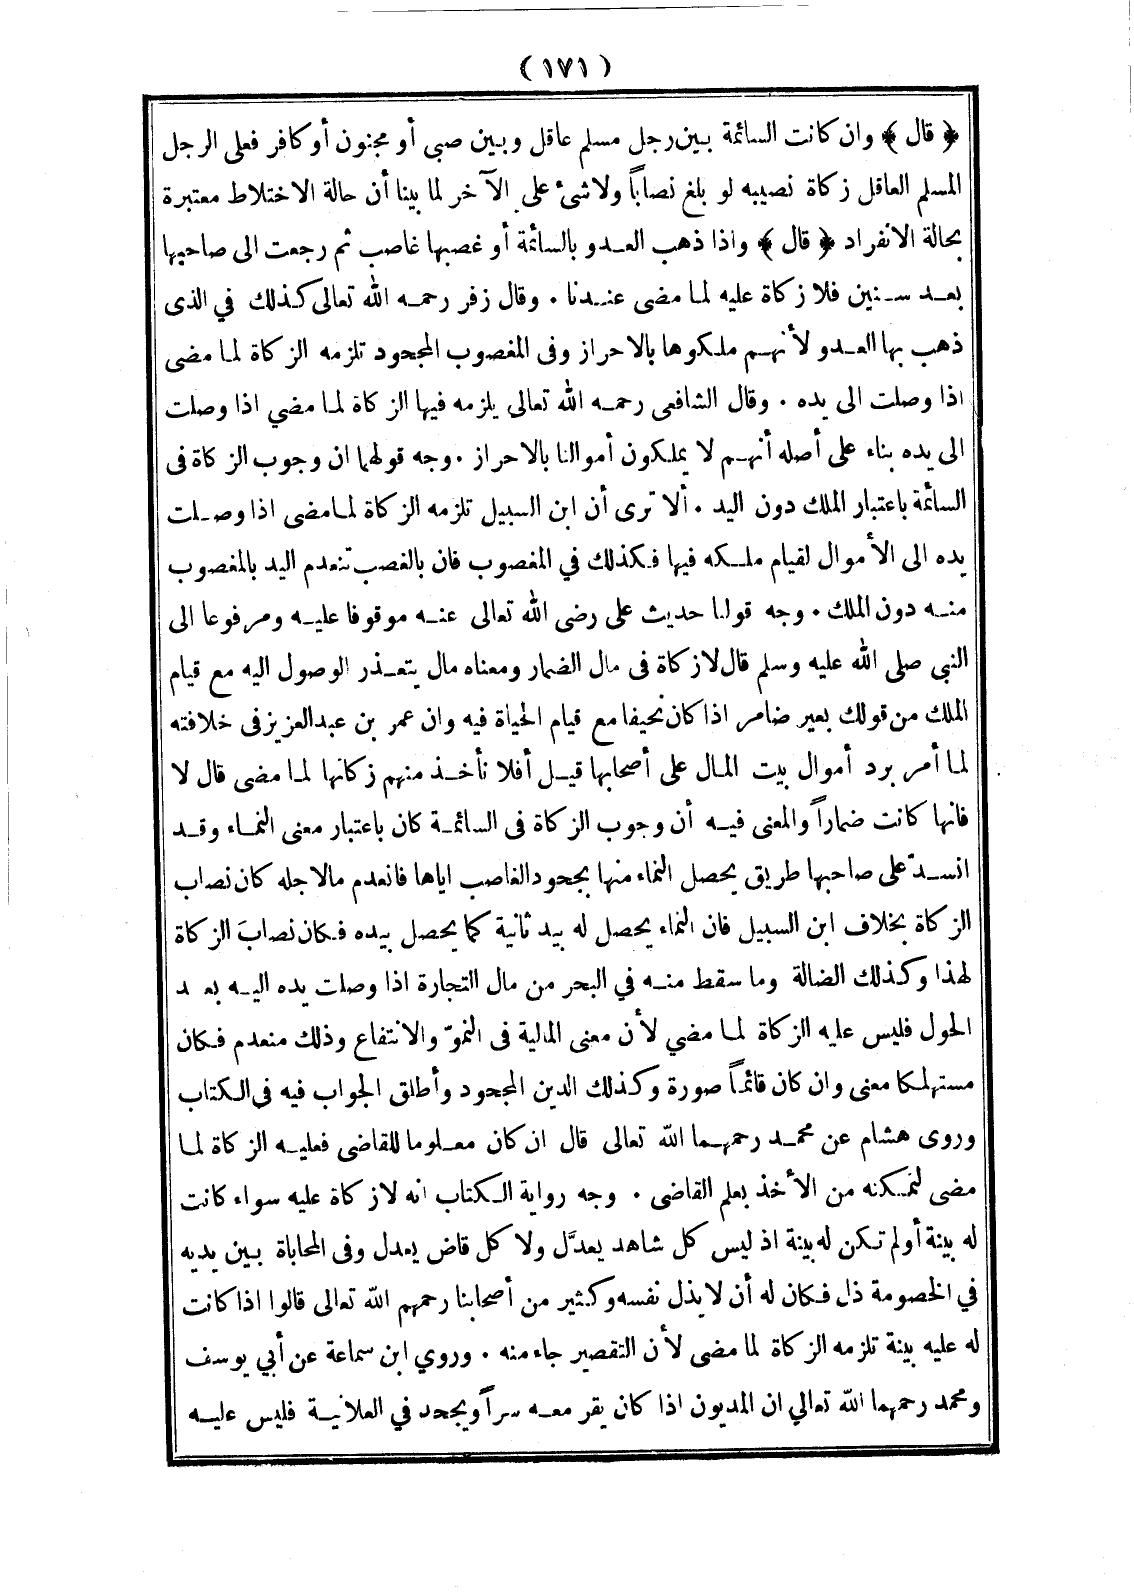 (١٧١)
﴿ قال ﴾ وان كانت السائمة بين رجل مسلم عاقل وبين صبى أو مجنون أو كافر فعلى الرجل
المسلم العاقل زكاة نصيبه لو بلغ نصاباً ولا شئ على الآخر لما بينا أن حالة الاختلاط معتبرة
بحالة الانفراد ﴿ قال ﴾ واذا ذهب العدو بالسائمة أو غصبها غاصب ثم رجعت الى صاحبها
بعد سنين فلا زكاة عليه لما مضى عندنا . وقال زفر رحمه الله تعالى كذلك في الذى
ذهب بها العدو لأنهم ملكوها بالاحراز وفى المغصوب المجحود تلزمه الزكاة لما مضى
اذا وصلت الى يده . وقال الشافعى رحمه الله تعالى يلزمه فيها الزكاة لما مضي اذا وصلت
الى يده بناء على أصله أنهم لا يملكون أموالنا بالاحراز . وجه قولهما ان وجوب الزكاة فى
السائمة باعتبار الملك دون اليد . ألا ترى أن ابن السبيل تلزمه الزكاة لما مضى اذا وصلت
يده الى الأموال لقيام ملكه فيها فكذلك في المغصوب فان بالغصب تنعدم اليد بالمغصوب
منه دون الملك . وجه قولنا حديث على رضى الله تعالى عنه موقوفا عليه ومرفوعا الى
النبى صلى الله عليه وسلم قال لا زكاة فى مال الضمار ومعناه مال يتعذر الوصول اليه مع قيام
الملك من قولك بعير ضامر اذا كان نحيفا مع قيام الحياة فيه وان عمر بن عبدالعزيز فى خلافته
لما أمر برد أموال بيت المال على أصحابها قيل أفلا نأخذ منهم زكاتها لما مضى قال لا
فانها كانت ضماراً والمعنى فيه أن وجوب الزكاة فى السائمة كان باعتبار معنى النماء وقد
انسدّ على صاحبها طريق يحصل النماء منها بجحود الغاصب اياها فانعدم مالاجله كان نصاب
الزكاة بخلاف ابن السبيل فان النماء يحصل له بيد ثانية كما يحصل بيده فكان نصابَ الزكاة
لهذا وكذلك الضالة وما سقط منه في البحر من مال التجارة اذا وصلت يده اليه بعد
الحول فليس عليه الزكاة لما مضي لأن معنى المالية فى النموّ والانتفاع وذلك منعدم فكان
مستهلكا معنى وان كان قائماً صورة وكذلك الدين المجحود وأطلق الجواب فيه فى الكتاب
وروى هشام عن محمد رحمهما الله تعالى قال ان كان معلوما للقاضى فعليه الزكاة لما
مضى لتمكنه من الأخذ بعلم القاضى . وجه رواية الكتاب انه لا زكاة عليه سواء كانت
له بينة أولم تكن له بينة اذ ليس كل شاهد يعدَّل ولا كل قاض يعدل وفى المحاباة بين يديه
في الخصومة ذل فكان له أن لا يذل نفسه وكثير من أصحابنا رحمهم الله تعالى قالوا اذا كانت
له عليه بينة تلزمه الزكاة لما مضى لأن التقصير جاء منه . وروي ابن سماعة عن أبي يوسف
ومحمد رحمهما الله تعالي ان المديون اذا كان يقر معه سراً ويجحد في العلانية فليس عليه